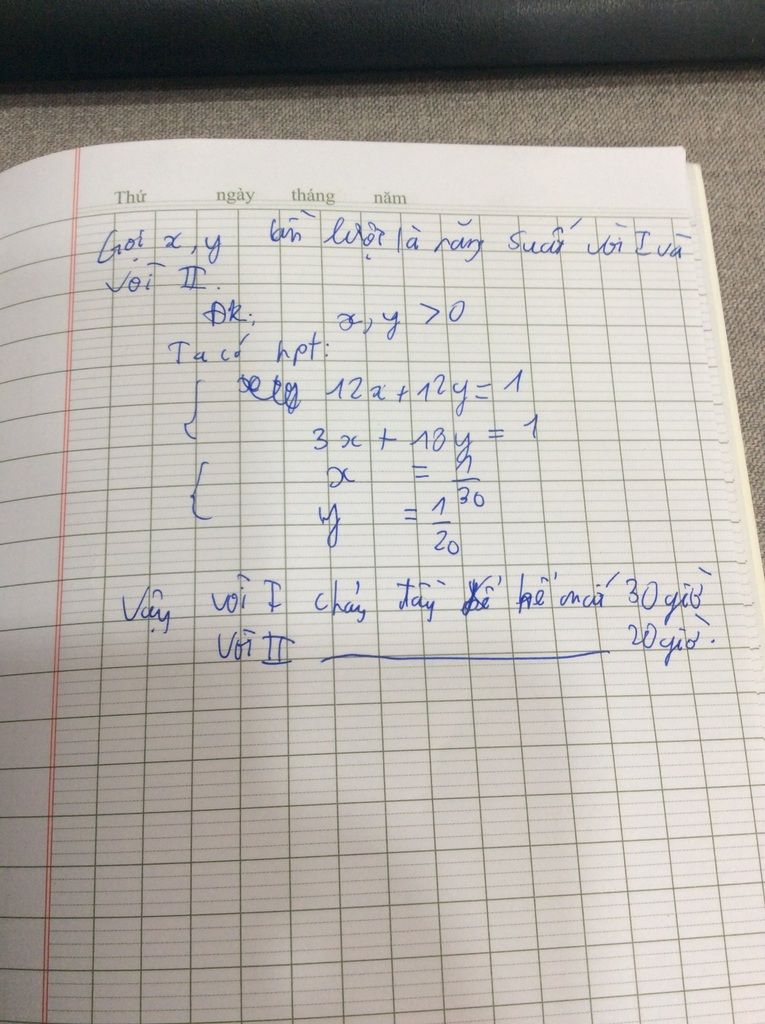 Thứ ngày tháng năm
Gọi x, y lần lượt là năng suất vòi I và
vòi II.
ĐK: x, y > 0
Ta có hpt:
12x + 12y = 1
3x + 18y = 1
x = 1/30
y = 1/20
Vậy vòi I chảy đầy bể mất 30 giờ
Vòi II 20 giờ.